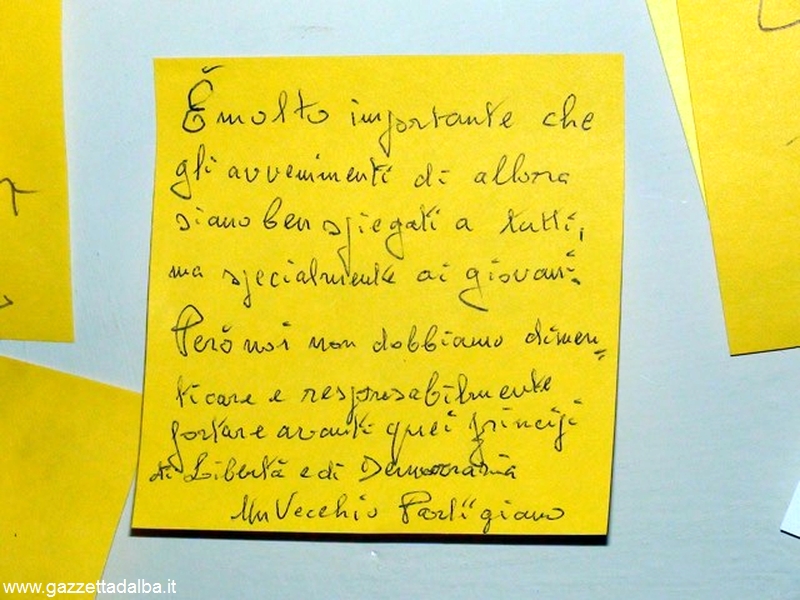 È molto importante che
gli avvenimenti di allora
siano ben spiegati a tutti,
ma specialmente ai giovani.
Però noi non dobbiamo dimen=
ticare e responsabilmente
portare avanti quei principi
di Libertà e di Democrazia
Un Vecchio Partigiano
www.gazzettadalba.it